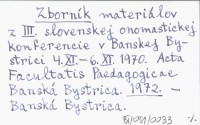 Zborník materiálov
z III. slovenskej onomastickej
konferencie v Banskej By-
strici 4.XI.-6.XI. 1970. Acta
Facultatis Paedagogicae
Banská Bystrica. 1972. -
Banská Bystrica.